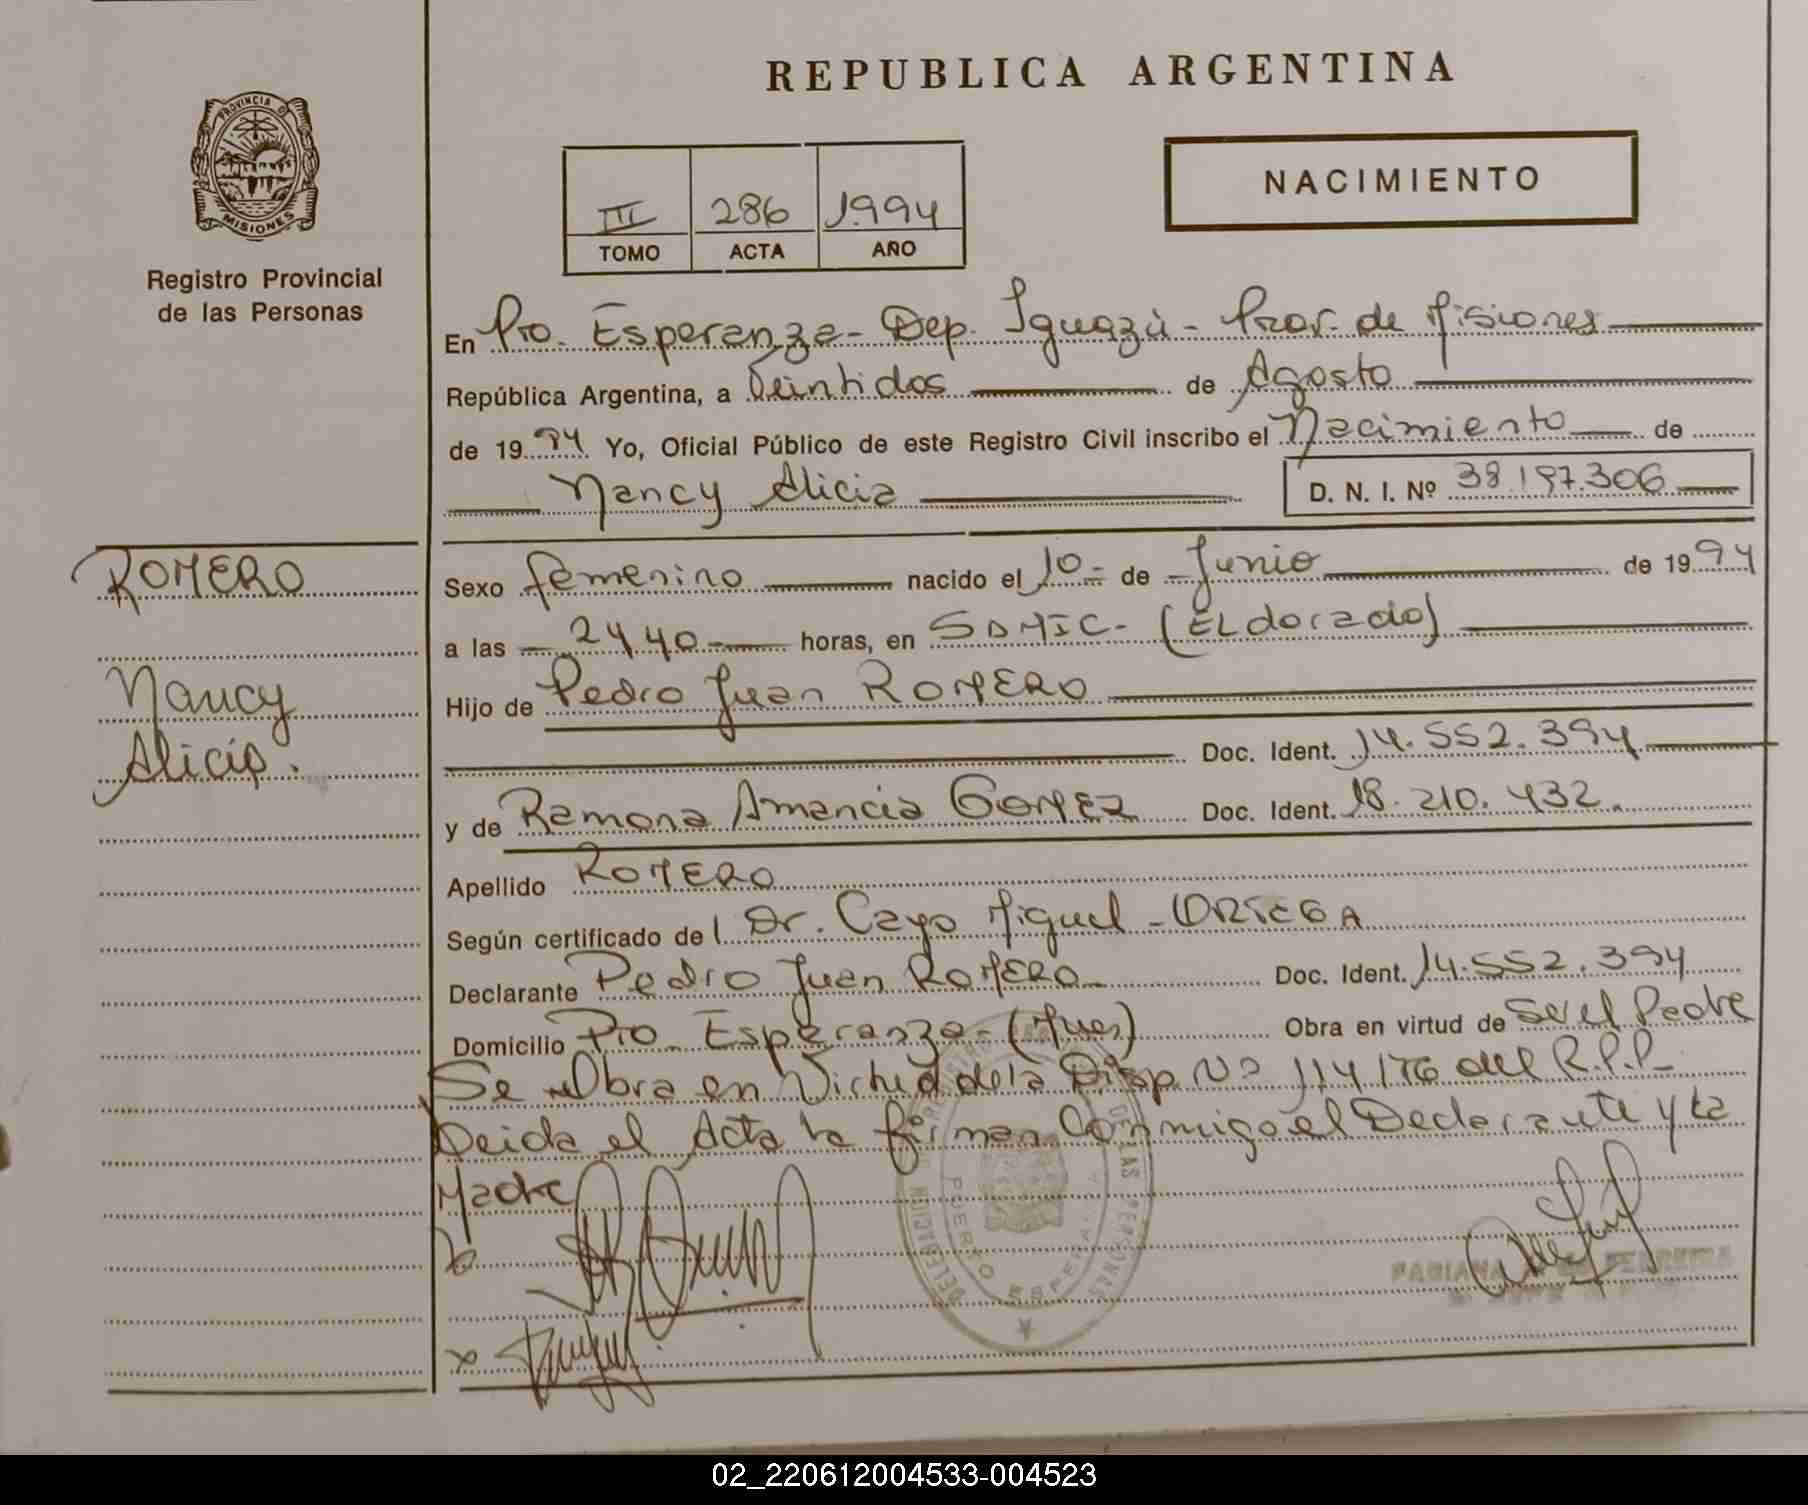 REPUBLICA ARGENTINA
PROVINCIA D
MISIONES
Registro Provincial
de las Personas
III 286 1994
TOMO ACTA AÑO
NACIMIENTO
En Pto. Esperanza - Dep. Iguazú - Prov. de Misiones
República Argentina, a Veintidos de Agosto
de 1994 Yo, Oficial Público de este Registro Civil inscribo el Nacimiento de
Nancy Alicia D. N. I. Nº 38.197.306
ROMERO
Nancy
Alicia.
Sexo femenino nacido el 10 - de Junio de 1994
a las 24 40 horas, en SAMIC - (ELdorado)
Hijo de Pedro Juan ROMERO
Doc. Ident. 14.552.394
y de Ramona Amancia GOMEZ Doc. Ident. 18.210.432
Apellido ROMERO
Según certificado de l Dr. Cayo Miguel - ORTEGA
Declarante Pedro Juan ROMERO Doc. Ident. 14.552.394
Domicilio Pto. Esperanza - (Mnes) Obra en virtud de Ser el Padre
Se Obra en Virtud de la Disp Nº 114/76 del R.P.P.
Leida el Acta la firman Conmigo el Declarante y la
Madre
DELEGACION REGISTRO DE LAS PERSONAS
PUERTO ESPERANZA
FABIANA FERREIRA
02_220612004533-004523